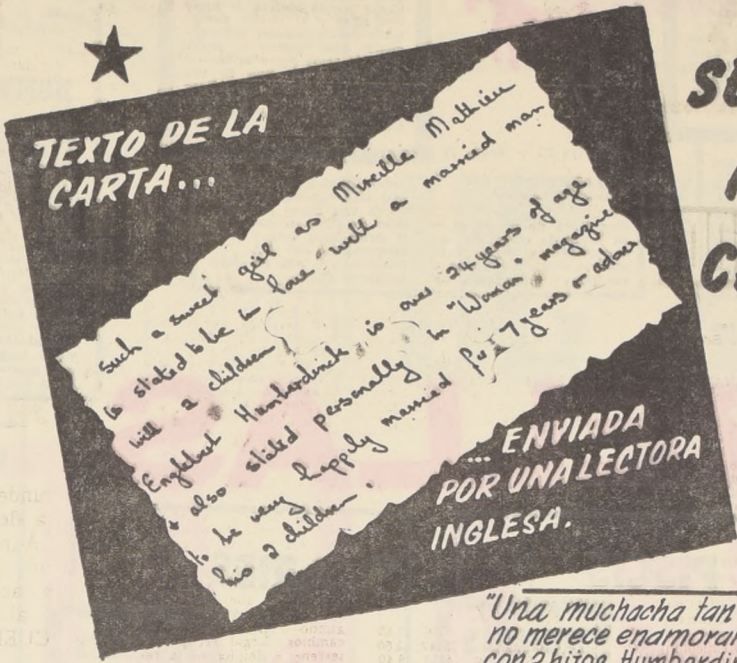 TEXTO DE LA
CARTA...
such a sweet girl as Mireille Mathieu
is stated to be in love with a married man
will 2 children
Englebert Humberdinck is over 24 years of age
+ also stated personally in "Woman" magazine
to be very happily married for 7 years + adores
his 2 children.
... ENVIADA
POR UNA LECTORA
INGLESA.
"Una muchacha tan
no merece enamorar
con 2 hijos. Humberdi